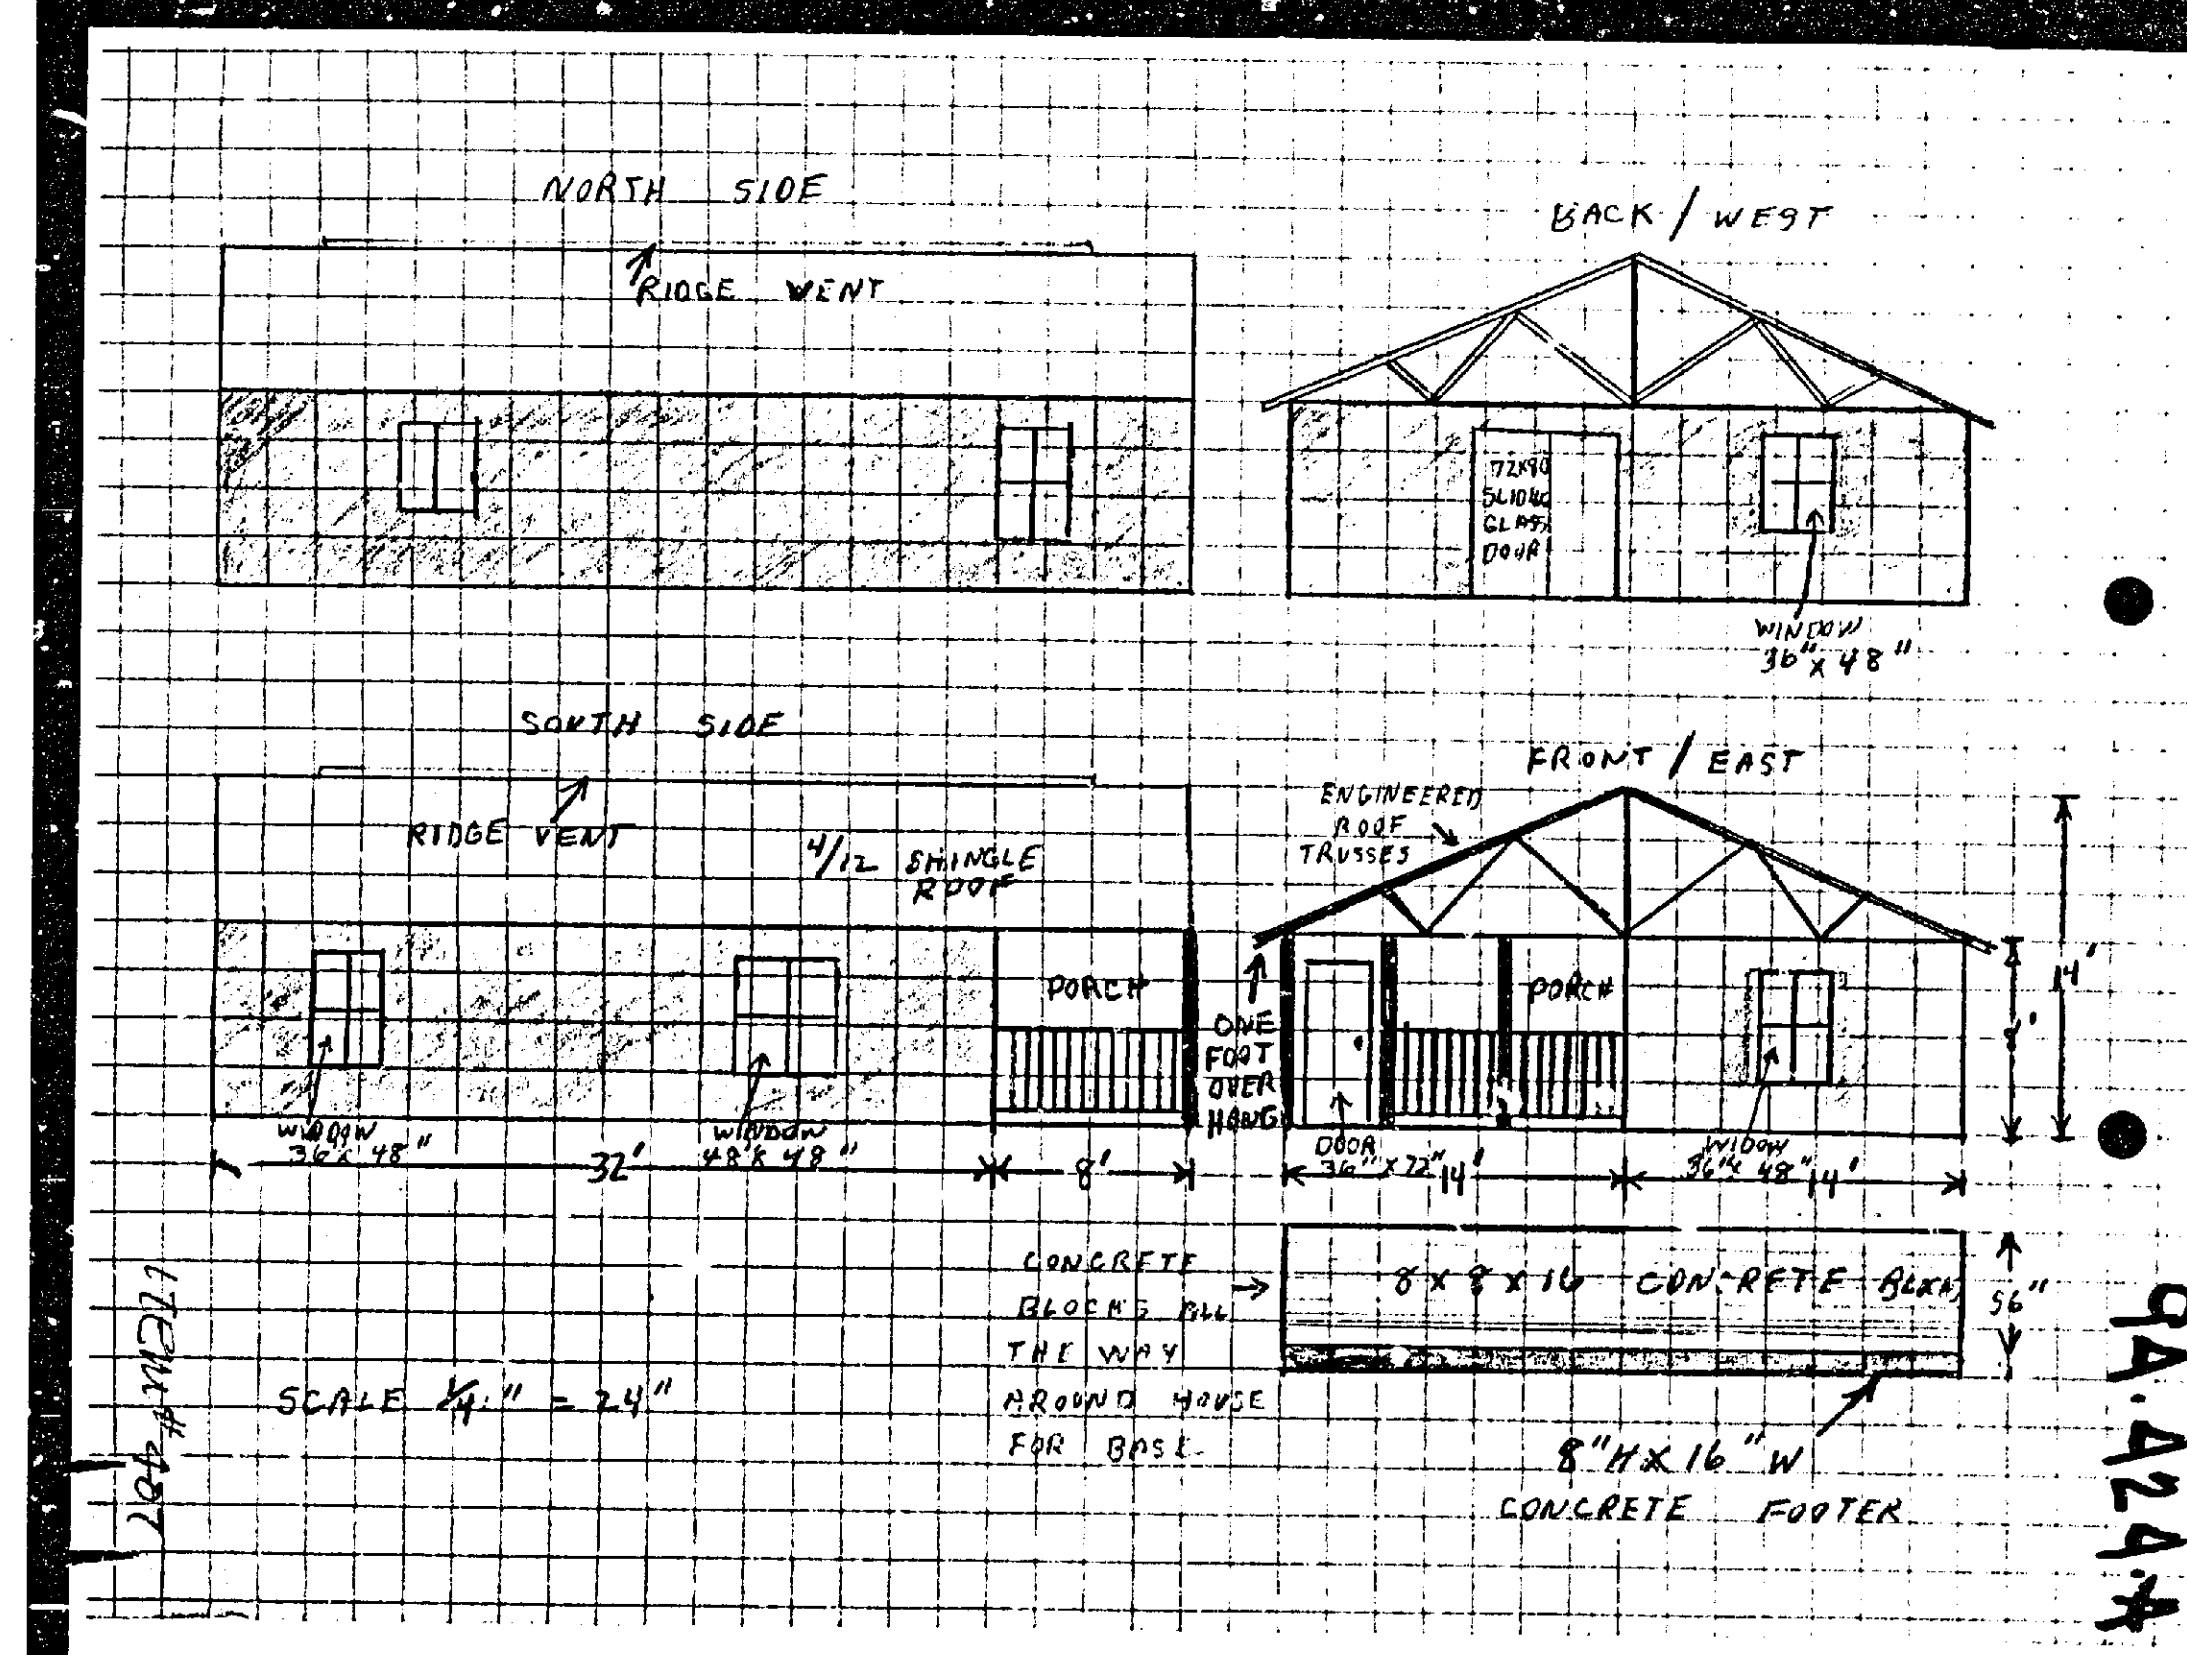 NORTH SIDE
RIDGE VENT
BACK / WEST
72X80
SLIDING
GLASS
DOOR
WINDOW
36" X 48"
SOUTH SIDE
RIDGE VENT
4/12 SHINGLE
ROOF
PORCH
WINDOW
36 X 48"
WINDOW
48 X 48"
32'
8'
FRONT / EAST
ENGINEERED
ROOF
TRUSSES
ONE
FOOT
OVER
HANG
PORCH
DOOR
36" X 72"
WIDOW
36" X 48"
14'
14'
8'
14'
CONCRETE
BLOCKS ALL
THE WAY
AROUND HOUSE
FOR BASE
8 X 8 X 16 CONCRETE
56"
8" H X 16" W
CONCRETE FOOTER
SCALE 1/4" = 24"
ITEM # 487